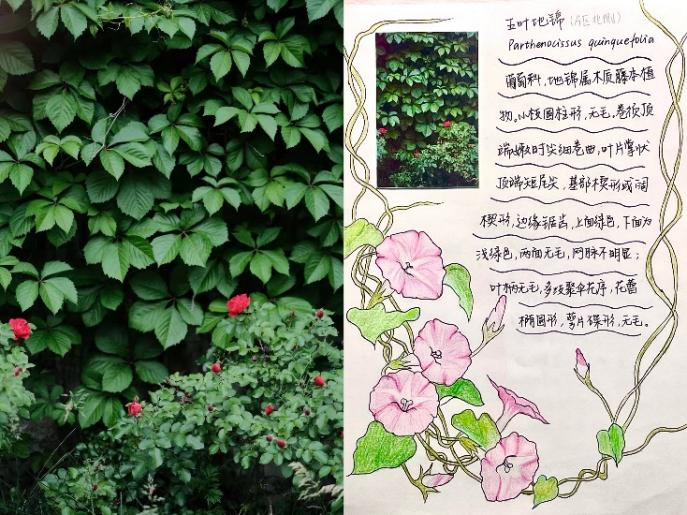 五叶地锦(A区北侧)
Parthenocissus quinquefolia
葡萄科,地锦属木质藤本植
物。小枝圆柱形,无毛。卷须顶
端嫩时尖细卷曲,叶片掌状
顶端短尾尖,基部楔形或阔
楔形,边缘锯齿,上面绿色,下面为
浅绿色,两面无毛,网脉不明显;
叶柄无毛,多歧聚伞花序,花蕾
椭圆形,萼片碟形,无毛。